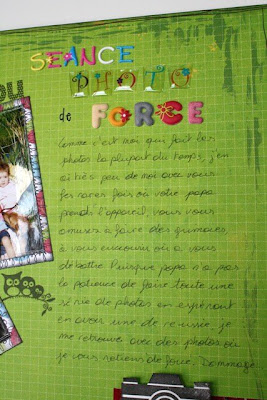 SEANCE
PHOTO
de FORCE
Comme c'est moi qui fait les
photos la plupart du temps, j'en
ai très peu de moi avec vous
les rares fois où votre papa
prend l'appareil, vous vous
amusez à faire des grimaces,
à vous encourir ou à vous
débattre. Puisque papa n'a pas
la patience de faire toute une
série de photos en espérant
en avoir une de réussie, je
me retrouve avec des photos où
je vous retiens de force. Dommage